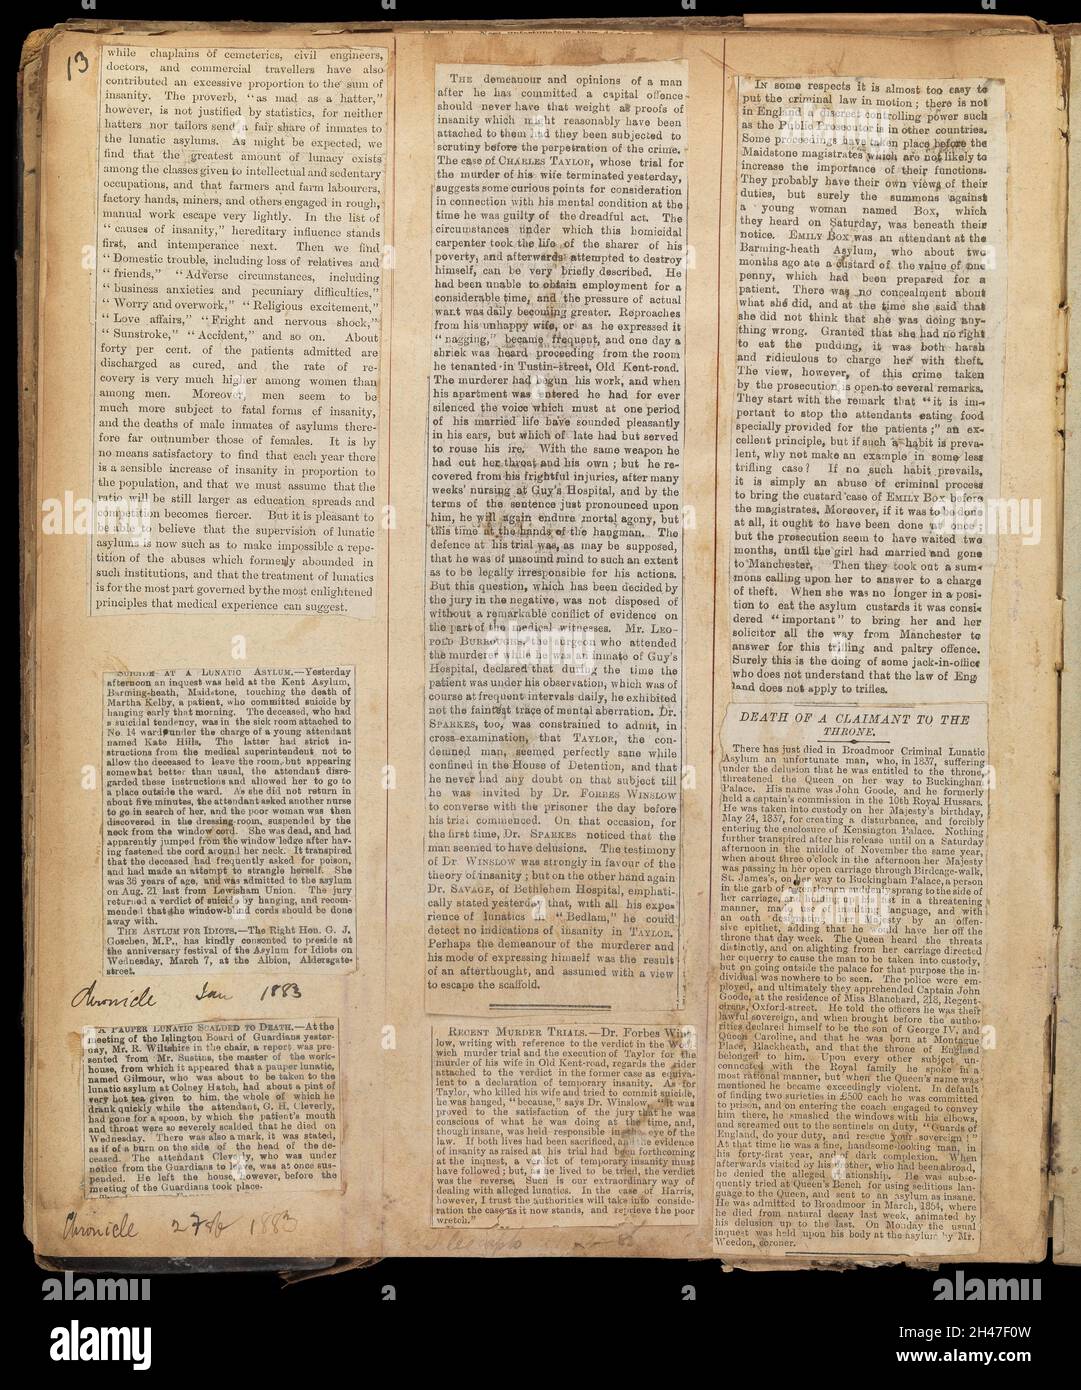 13
while chaplains of cemeteries, civil engineers,
doctors, and commercial travellers have also
contributed an excessive proportion to the sum of
insanity. The proverb, "as mad as a hatter,"
however, is not justified by statistics, for neither
hatters nor tailors send a fair share of inmates to
the lunatic asylums. As might be expected, we
find that the greatest amount of lunacy exists
among the classes given to intellectual and sedentary
occupations, and that farmers and farm labourers,
factory hands, miners, and others engaged in rough,
manual work escape very lightly. In the list of
"causes of insanity," hereditary influence stands
first, and intemperance next. Then we find
"Domestic trouble, including loss of relatives and
"friends," "Adverse circumstances, including
"business anxieties and pecuniary difficulties,"
"Worry and overwork," "Religious excitement,"
"Love affairs," "Fright and nervous shock,"
"Sunstroke," "Accident," and so on. About
forty per cent. of the patients admitted are
discharged as cured, and the rate of re-
covery is very much higher among women than
among men. Moreover, men seem to be
much more subject to fatal forms of insanity,
and the deaths of male inmates of asylums there-
fore far outnumber those of females. It is by
no means satisfactory to find that each year there
is a sensible increase of insanity in proportion to
the population, and that we must assume that the
ratio will be still larger as education spreads and
competition becomes fiercer. But it is pleasant to
be able to believe that the supervision of lunatic
asylums is now such as to make impossible a repe-
tition of the abuses which formerly abounded in
such institutions, and that the treatment of lunatics
is for the most part governed by the most enlightened
principles that medical experience can suggest.
SUICIDE AT A LUNATIC ASYLUM.—Yesterday
afternoon an inquest was held at the Kent Asylum,
Barming-heath, Maidstone, touching the death of
Martha Kelby, a patient, who committed suicide by
hanging early that morning. The deceased, who had
a suicidal tendency, was in the sick room attached to
No. 14 ward under the charge of a young attendant
named Kate Hills. The latter had strict in-
structions from the medical superintendent not to
allow the deceased to leave the room, but appearing
somewhat better than usual, the attendant disre-
garded these instructions and allowed her to go to
a place outside the ward. As she did not return in
about five minutes, the attendant asked another nurse
to go in search of her, and the poor woman was then
discovered in the dressing-room, suspended by the
neck from the window cord. She was dead, and had
apparently jumped from the window ledge after hav-
ing fastened the cord around her neck. It transpired
that the deceased had frequently asked for poison,
and had made an attempt to strangle herself. She
was 36 years of age, and was admitted to the asylum
on Aug. 21 last from Lewisham Union. The jury
returned a verdict of suicide by hanging, and recom-
mended that the window-blind cords should be done
away with.
THE ASYLUM FOR IDIOTS.—The Right Hon. G. J.
Goschen, M.P., has kindly consented to preside at
the anniversary festival of the Asylum for Idiots on
Wednesday, March 7, at the Albion, Aldersgate-
street.
Chronicle Jan 1883
A PAUPER LUNATIC SCALDED TO DEATH.—At the
meeting of the Islington Board of Guardians yester-
day, Mr. R. Wiltshire in the chair, a report was pre-
sented from Mr. Sustins, the master of the work-
house, from which it appeared that a pauper lunatic,
named Gilmour, who was about to be taken to the
lunatic asylum at Colney Hatch, had about a pint of
very hot tea given to him, the whole of which he
drank quickly while the attendant, G. H. Cleverly,
had gone for a spoon, by which the patient's mouth
and throat were so severely scalded that he died on
Wednesday. There was also a mark, it was stated,
as if of a burn on the side of the head of the de-
ceased. The attendant Cleverly, who was under
notice from the Guardians to leave, was at once sus-
pended. He left the house, however, before the
meeting of the Guardians took place.
Chronicle 27 Feb 1883
THE demeanour and opinions of a man
after he has committed a capital offence
should never have that weight as proofs of
insanity which might reasonably have been
attached to them had they been subjected to
scrutiny before the perpetration of the crime.
The case of CHARLES TAYLOR, whose trial for
the murder of his wife terminated yesterday,
suggests some curious points for consideration
in connection with his mental condition at the
time he was guilty of the dreadful act. The
circumstances under which this homicidal
carpenter took the life of the sharer of his
poverty, and afterwards attempted to destroy
himself, can be very briefly described. He
had been unable to obtain employment for a
considerable time, and the pressure of actual
want was daily becoming greater. Reproaches
from his unhappy wife, or as he expressed it
"nagging," became frequent, and one day a
shriek was heard proceeding from the room
he tenanted in Tustin-street, Old Kent-road.
The murderer had begun his work, and when
his apartment was entered he had for ever
silenced the voice which must at one period
of his married life have sounded pleasantly
in his ears, but which of late had but served
to rouse his ire. With the same weapon he
had cut her throat and his own; but he re-
covered from his frightful injuries, after many
weeks' nursing at Guy's Hospital, and by the
terms of the sentence just pronounced upon
him, he will again endure mortal agony, but
this time at the hands of the hangman. The
defence at his trial was, as may be supposed,
that he was of unsound mind to such an extent
as to be legally irresponsible for his actions.
But this question, which has been decided by
the jury in the negative, was not disposed of
without a remarkable conflict of evidence on
the part of the medical witnesses. Mr. LEO-
POLD BURROUGHS, the surgeon who attended
the murderer while he was an inmate of Guy's
Hospital, declared that during the time the
patient was under his observation, which was of
course at frequent intervals daily, he exhibited
not the faintest trace of mental aberration. Dr.
SPARKES, too, was constrained to admit, in
cross-examination, that TAYLOR, the con-
demned man, seemed perfectly sane while
confined in the House of Detention, and that
he never had any doubt on that subject till
he was invited by Dr. FORBES WINSLOW
to converse with the prisoner the day before
his trial commenced. On that occasion, for
the first time, Dr. SPARKES noticed that the
man seemed to have delusions. The testimony
of Dr. WINSLOW was strongly in favour of the
theory of insanity; but on the other hand again
Dr. SAVAGE, of Bethlehem Hospital, emphati-
cally stated yesterday that, with all his expe-
rience of lunatics in "Bedlam," he could
detect no indications of insanity in TAYLOR.
Perhaps the demeanour of the murderer and
his mode of expressing himself was the result
of an afterthought, and assumed with a view
to escape the scaffold.
RECENT MURDER TRIALS.—Dr. Forbes Wins-
low, writing with reference to the verdict in the Wool-
wich murder trial and the execution of Taylor for the
murder of his wife in Old Kent-road, regards the rider
attached to the verdict in the former case as equiva-
lent to a declaration of temporary insanity. As for
Taylor, who killed his wife and tried to commit suicide,
he was hanged, "because," says Dr. Winslow, "it was
proved to the satisfaction of the jury that he was
conscious of what he was doing at the time, and,
though insane, was held responsible in the eye of the
law. If both lives had been sacrificed, and the evidence
of insanity as raised at his trial had been forthcoming
at the inquest, a verdict of temporary insanity must
have followed; but, as he lived to be tried, the verdict
was the reverse. Such is our extraordinary way of
dealing with alleged lunatics. In the case of Harris,
however, I trust the authorities will take into conside-
ration the case as it now stands, and reprieve the poor
wretch."
IN some respects it is almost too easy to
put the criminal law in motion; there is not
in England a discreet controlling power such
as the Public Prosecutor is in other countries.
Some proceedings have taken place before the
Maidstone magistrates which are not likely to
increase the importance of their functions.
They probably have their own views of their
duties, but surely the summons against
a young woman named Box, which
they heard on Saturday, was beneath their
notice. EMILY BOX was an attendant at the
Barming-heath Asylum, who about two
months ago ate a custard of the value of one
penny, which had been prepared for a
patient. There was no concealment about
what she did, and at the time she said that
she did not think that she was doing any-
thing wrong. Granted that she had no right
to eat the pudding, it was both harsh
and ridiculous to charge her with theft.
The view, however, of this crime taken
by the prosecution is open to several remarks.
They start with the remark that "it is im-
portant to stop the attendants eating food
specially provided for the patients;" an ex-
cellent principle, but if such a habit is preva-
lent, why not make an example in some less
trifling case? If no such habit prevails,
it is simply an abuse of criminal process
to bring the custard case of EMILY BOX before
the magistrates. Moreover, if it was to be done
at all, it ought to have been done at once;
but the prosecution seem to have waited two
months, until the girl had married and gone
to Manchester. Then they took out a sum-
mons calling upon her to answer to a charge
of theft. When she was no longer in a posi-
tion to eat the asylum custards it was consi-
dered "important" to bring her and her
solicitor all the way from Manchester to
answer for this trifling and paltry offence.
Surely this is the doing of some jack-in-office
who does not understand that the law of Eng
land does not apply to trifles.
DEATH OF A CLAIMANT TO THE
THRONE.
There has just died in Broadmoor Criminal Lunatic
Asylum an unfortunate man, who, in 1837, suffering
under the delusion that he was entitled to the throne,
threatened the Queen on her way to Buckingham
Palace. His name was John Goode, and he formerly
held a captain's commission in the 10th Royal Hussars.
He was taken into custody on her Majesty's birthday,
May 24, 1837, for creating a disturbance, and forcibly
entering the enclosure of Kensington Palace. Nothing
further transpired after his release until on a Saturday
afternoon in the middle of November the same year,
when about three o'clock in the afternoon her Majesty
was passing in her open carriage through Birdcage-walk,
St. James's, on her way to Buckingham Palace, a person
in the garb of a gentleman suddenly sprang to the side of
her carriage, and, holding up his fist in a threatening
manner, made use of insulting language, and with
an oath designating her Majesty by an offen-
sive epithet, adding that he would have her off the
throne that day week. The Queen heard the threats
distinctly, and on alighting from her carriage directed
her equerry to cause the man to be taken into custody,
but on going outside the palace for that purpose the in-
dividual was nowhere to be seen. The police were em-
ployed, and ultimately they apprehended Captain John
Goode, at the residence of Miss Blanchard, 218, Regent-
circus, Oxford-street. He told the officers he was their
lawful sovereign, and when brought before the autho-
rities declared himself to be the son of George IV. and
Queen Caroline, and that he was born at Montague
Place, Blackheath, and that the throne of England
belonged to him. Upon every other subject un-
connected with the Royal family he spoke in a
most rational manner, but when the Queen's name was
mentioned he became exceedingly violent. In default
of finding two sureties in £500 each he was committed
to prison, and on entering the coach engaged to convey
him there, he smashed the windows with his elbows,
and screamed out to the sentinels on duty, "Guards of
England, do your duty, and rescue your sovereign!"
At that time he was a fine, handsome-looking man, in
his forty-first year, and of dark complexion. When
afterwards visited by his brother, who had been abroad,
he denied the alleged relationship. He was subse-
quently tried at Queen's Bench for using seditious lan-
guage to the Queen, and sent to an asylum as insane.
He was admitted to Broadmoor in March, 1864, where
he died from natural decay last week, animated by
his delusion up to the last. On Monday the usual
inquest was held upon his body at the asylum by Mr.
Weedon, coroner.
alamy
Image ID: 2H47F0W
www.alamy.com